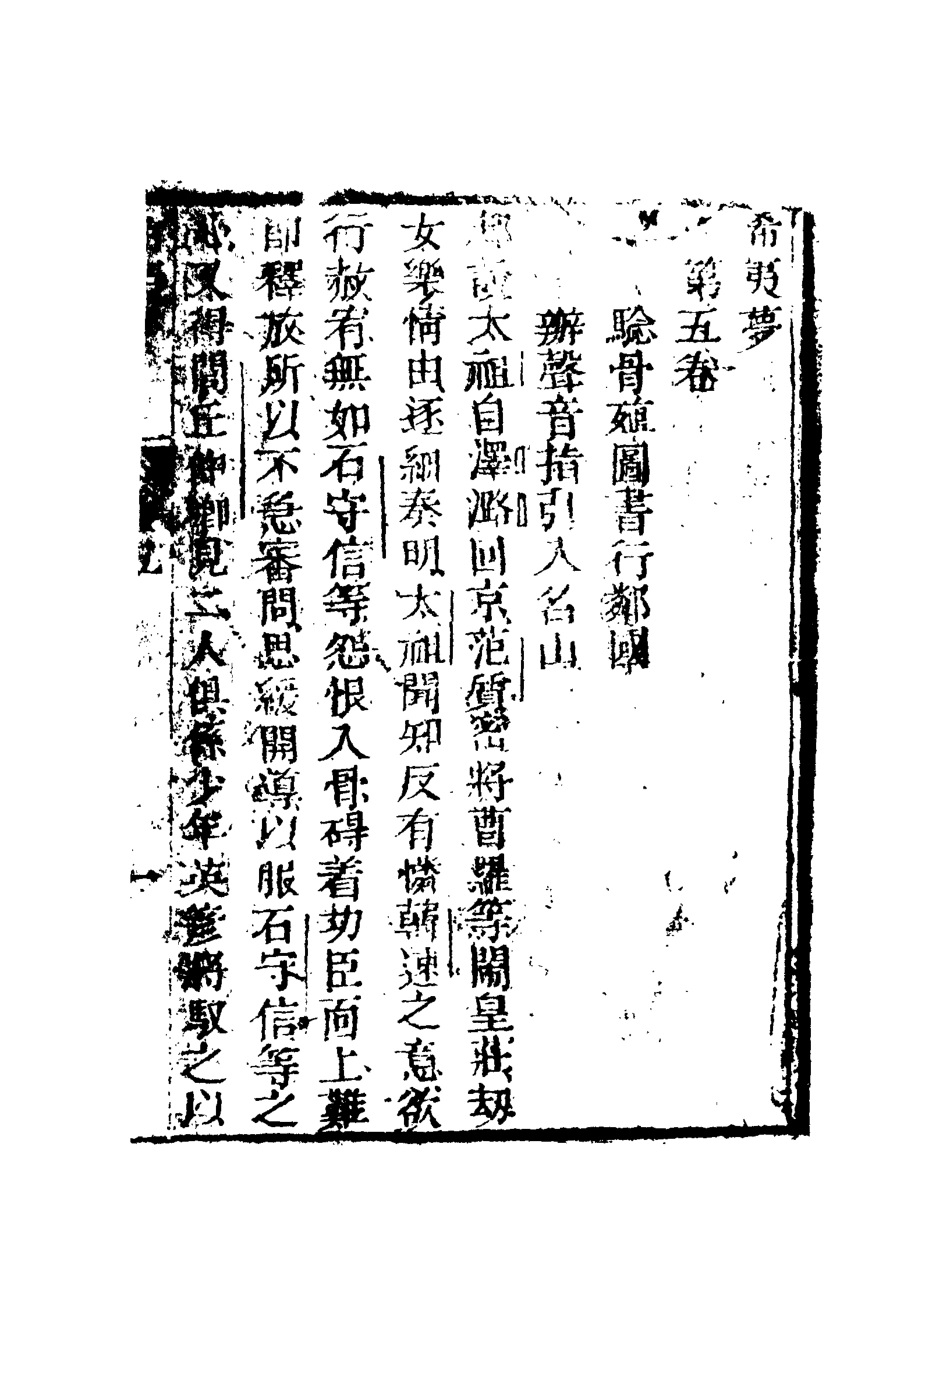 希夷夢
第五卷
驗骨殖圖書行鄰國
辦聲音指引入名山
太祖自澤潞回京范質密將曹羅等閙皇莊刼
女樂情由逐細奏明太祖聞知反有憐韓速之意欲
行赦宥無如石守信等怨恨入骨碍着功臣面上難
卽釋放所以不急審問思緩開導以服石守信等之
心又得閭丘仲卿見二人俱係少年英 將馭之以